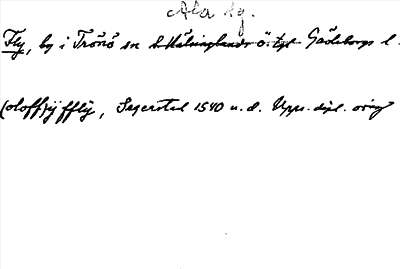 Ala tg.
Fly, by i Trönö sn S. Hälsinglands ö. tgl. Gävleborgs l.
(oloff) ij fflÿ, Segersta 1540 u. d. Upps. dipl. orig